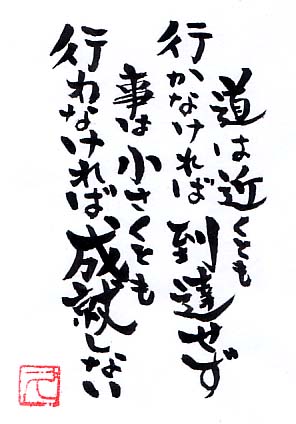 道は近くとも
行かなければ到達せず
事は小さくとも
行わなければ成就しない